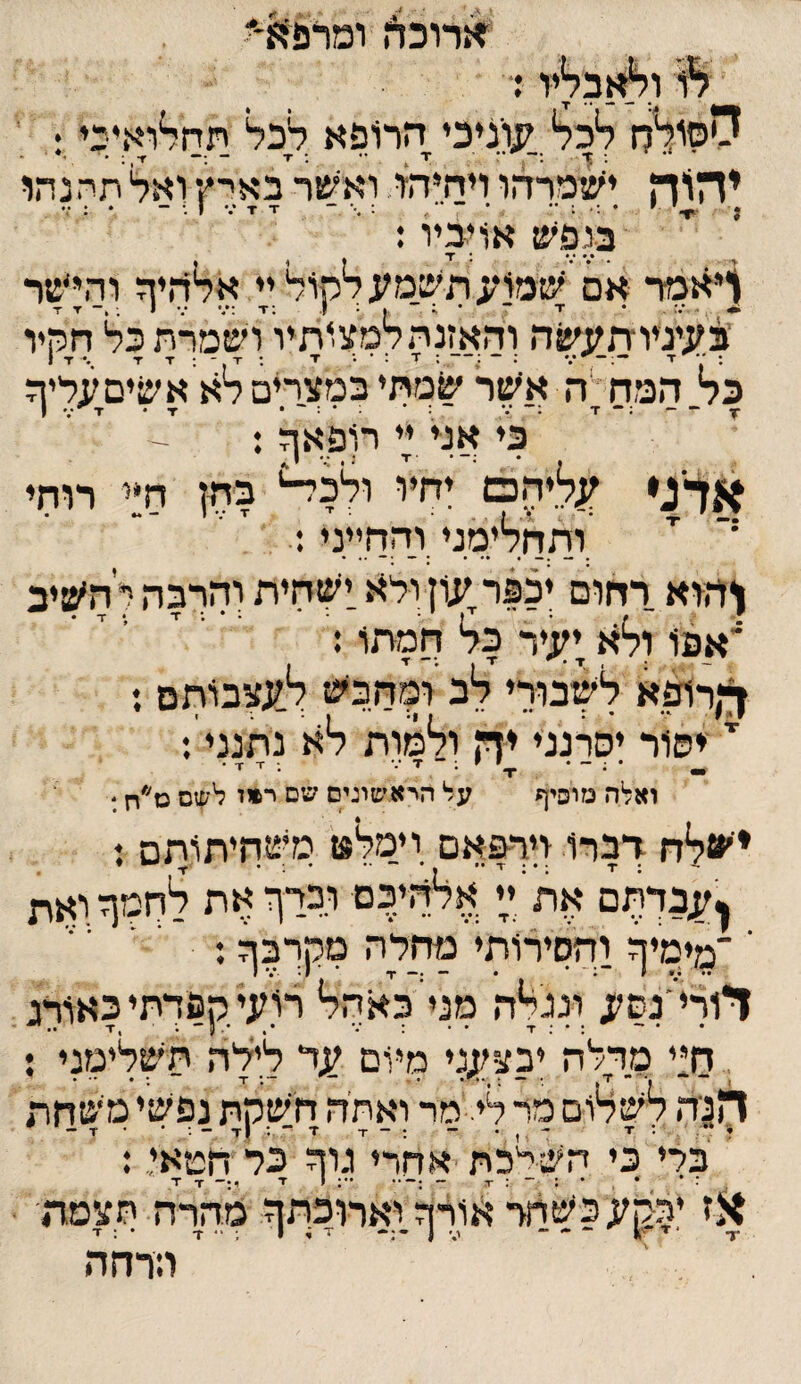 ארוכה ומרפא
לוֹ וְלַאֲבֵלָיו :
הַסּוֹלֵחַ לְכָל עֲוֹנֵיכִי הָרוֹפֵא לְכָל תַּחֲלוּאָיְכִי :
יהוה יִשְׁמְרֵהוּ וִיחַיֵּהוּ וְאֻשַּׁר בָּאָרֶץ וְאַל תִּתְּנֵהוּ
בְּנֶפֶשׁ אוֹיְבָיו :
וַיֹּאמֶר אִם שָׁמוֹעַ תִּשְׁמַע לְקוֹל יי אֱלֹהֶיךָ וְהַיָּשָׁר
בְּעֵינָיו תַּעֲשֶׂה וְהַאֲזַנְתָּ לְמִצְוֹתָיו וְשָׁמַרְתָּ כָּל חֻקָּיו
כָּל הַמַּחֲלָה אֲשֶׁר שַׂמְתִּי בְמִצְרַיִם לֹא אָשִׂים עָלֶיךָ
כִּי אֲנִי יי רוֹפְאֶךָ :
אֲדֹנָי עֲלֵיהֶם יִחְיוּ וּלְכָל בָּהֶן חַיֵּי רוּחִי
וְתַחֲלִימֵנִי וְהַחֲיֵינִי :
וְהוּא רַחוּם יְכַפֵּר עָוֹן וְלֹא יַשְׁחִית וְהִרְבָּה לְהָשִׁיב
אַפּוֹ וְלֹא יָעִיר כָּל חֲמָתוֹ :
הָרוֹפֵא לִשְׁבוּרֵי לֵב וּמְחַבֵּשׁ לְעַצְּבוֹתָם :
יַסּוֹר יִסְּרַנִּי יָּהּ וְלַמָּוֶת לֹא נְתָנָנִי :
ואלה מוסיף על הראשונים שם לשם ס"ח :
יִשְׁלַח דְּבָרוֹ וְיִרְפָּאֵם וִימַלֵּט מִשְּׁחִיתוֹתָם :
וַעֲבַדְתֶּם אֵת יי אֱלֹהֵיכֶם וּבֵרַךְ אֶת לַחְמְךָ וְאֶת
מֵימֶיךָ וַהֲסִירוֹתִי מַחֲלָה מִקִּרְבֶּךָ :
דּוֹרִי נִסַּע וְנִגְלָה מִנִּי כְּאֹהֶל רוֹעִי קִפַּדְתִּי כָאוֹרֵג
חַיַּי מִדַּלָּה יְבַצְּעֵנִי מִיּוֹם עַד לַיְלָה תַּשְׁלִימֵנִי :
הִנֵּה לְשָׁלוֹם מַר לִי מָר וְאַתָּה חָשַׁקְתָּ נַפְשִׁי מִשַּׁחַת
בְּלִי כִּי הִשְׁלַכְתָּ אַחֲרֵי גֵוְךָ כָּל חֲטָאָי :
אָז יִבָּקַע כַּשַּׁחַר אוֹרֶךָ וַאֲרוּכָתְךָ מְהֵרָה תִצְמָח